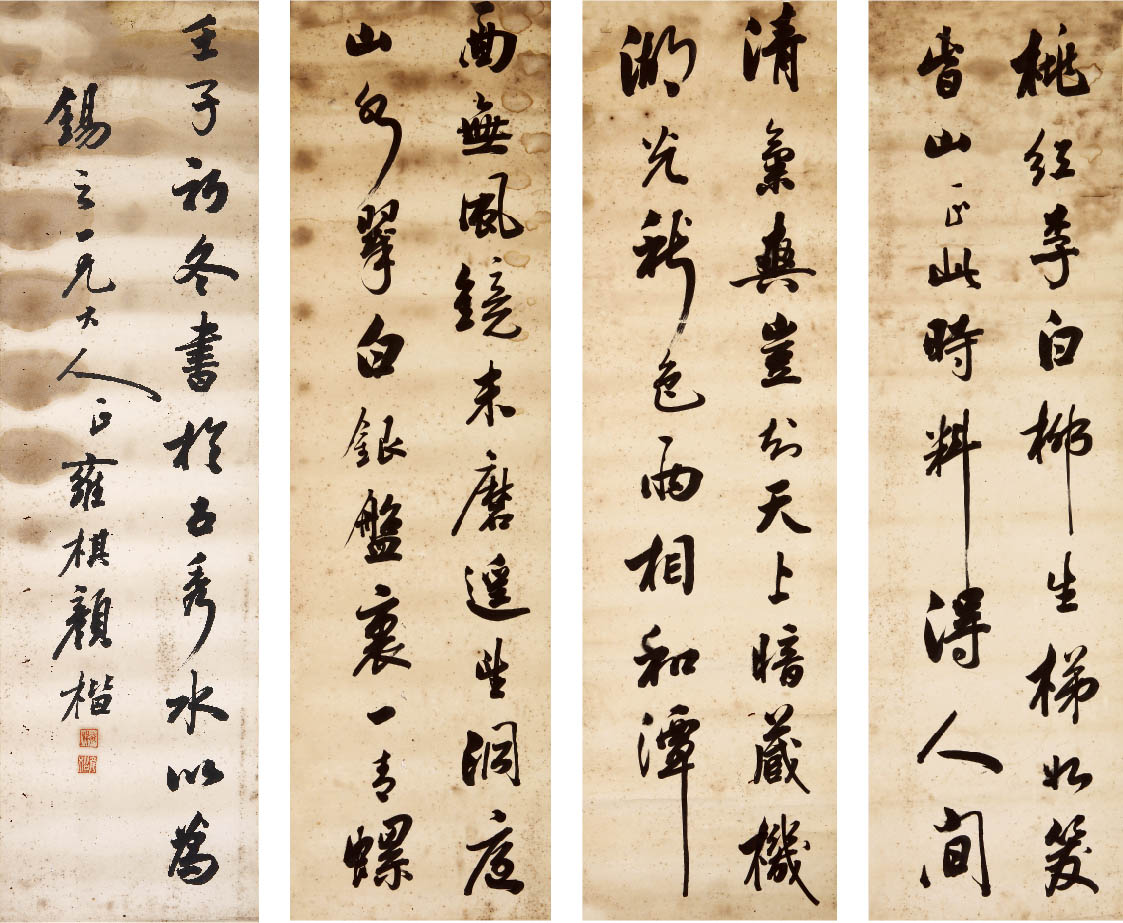 桃紅李白柳生梯如笑
旾山正此時料得人間
清氣與豈知天上暗藏機
湖光秋色兩相和潭
面無風鏡未磨遥望洞庭
山水翠白銀盤裏一青螺
壬子初冬書於古秀水以為
錫之仁兄大人正雍棋顏楷